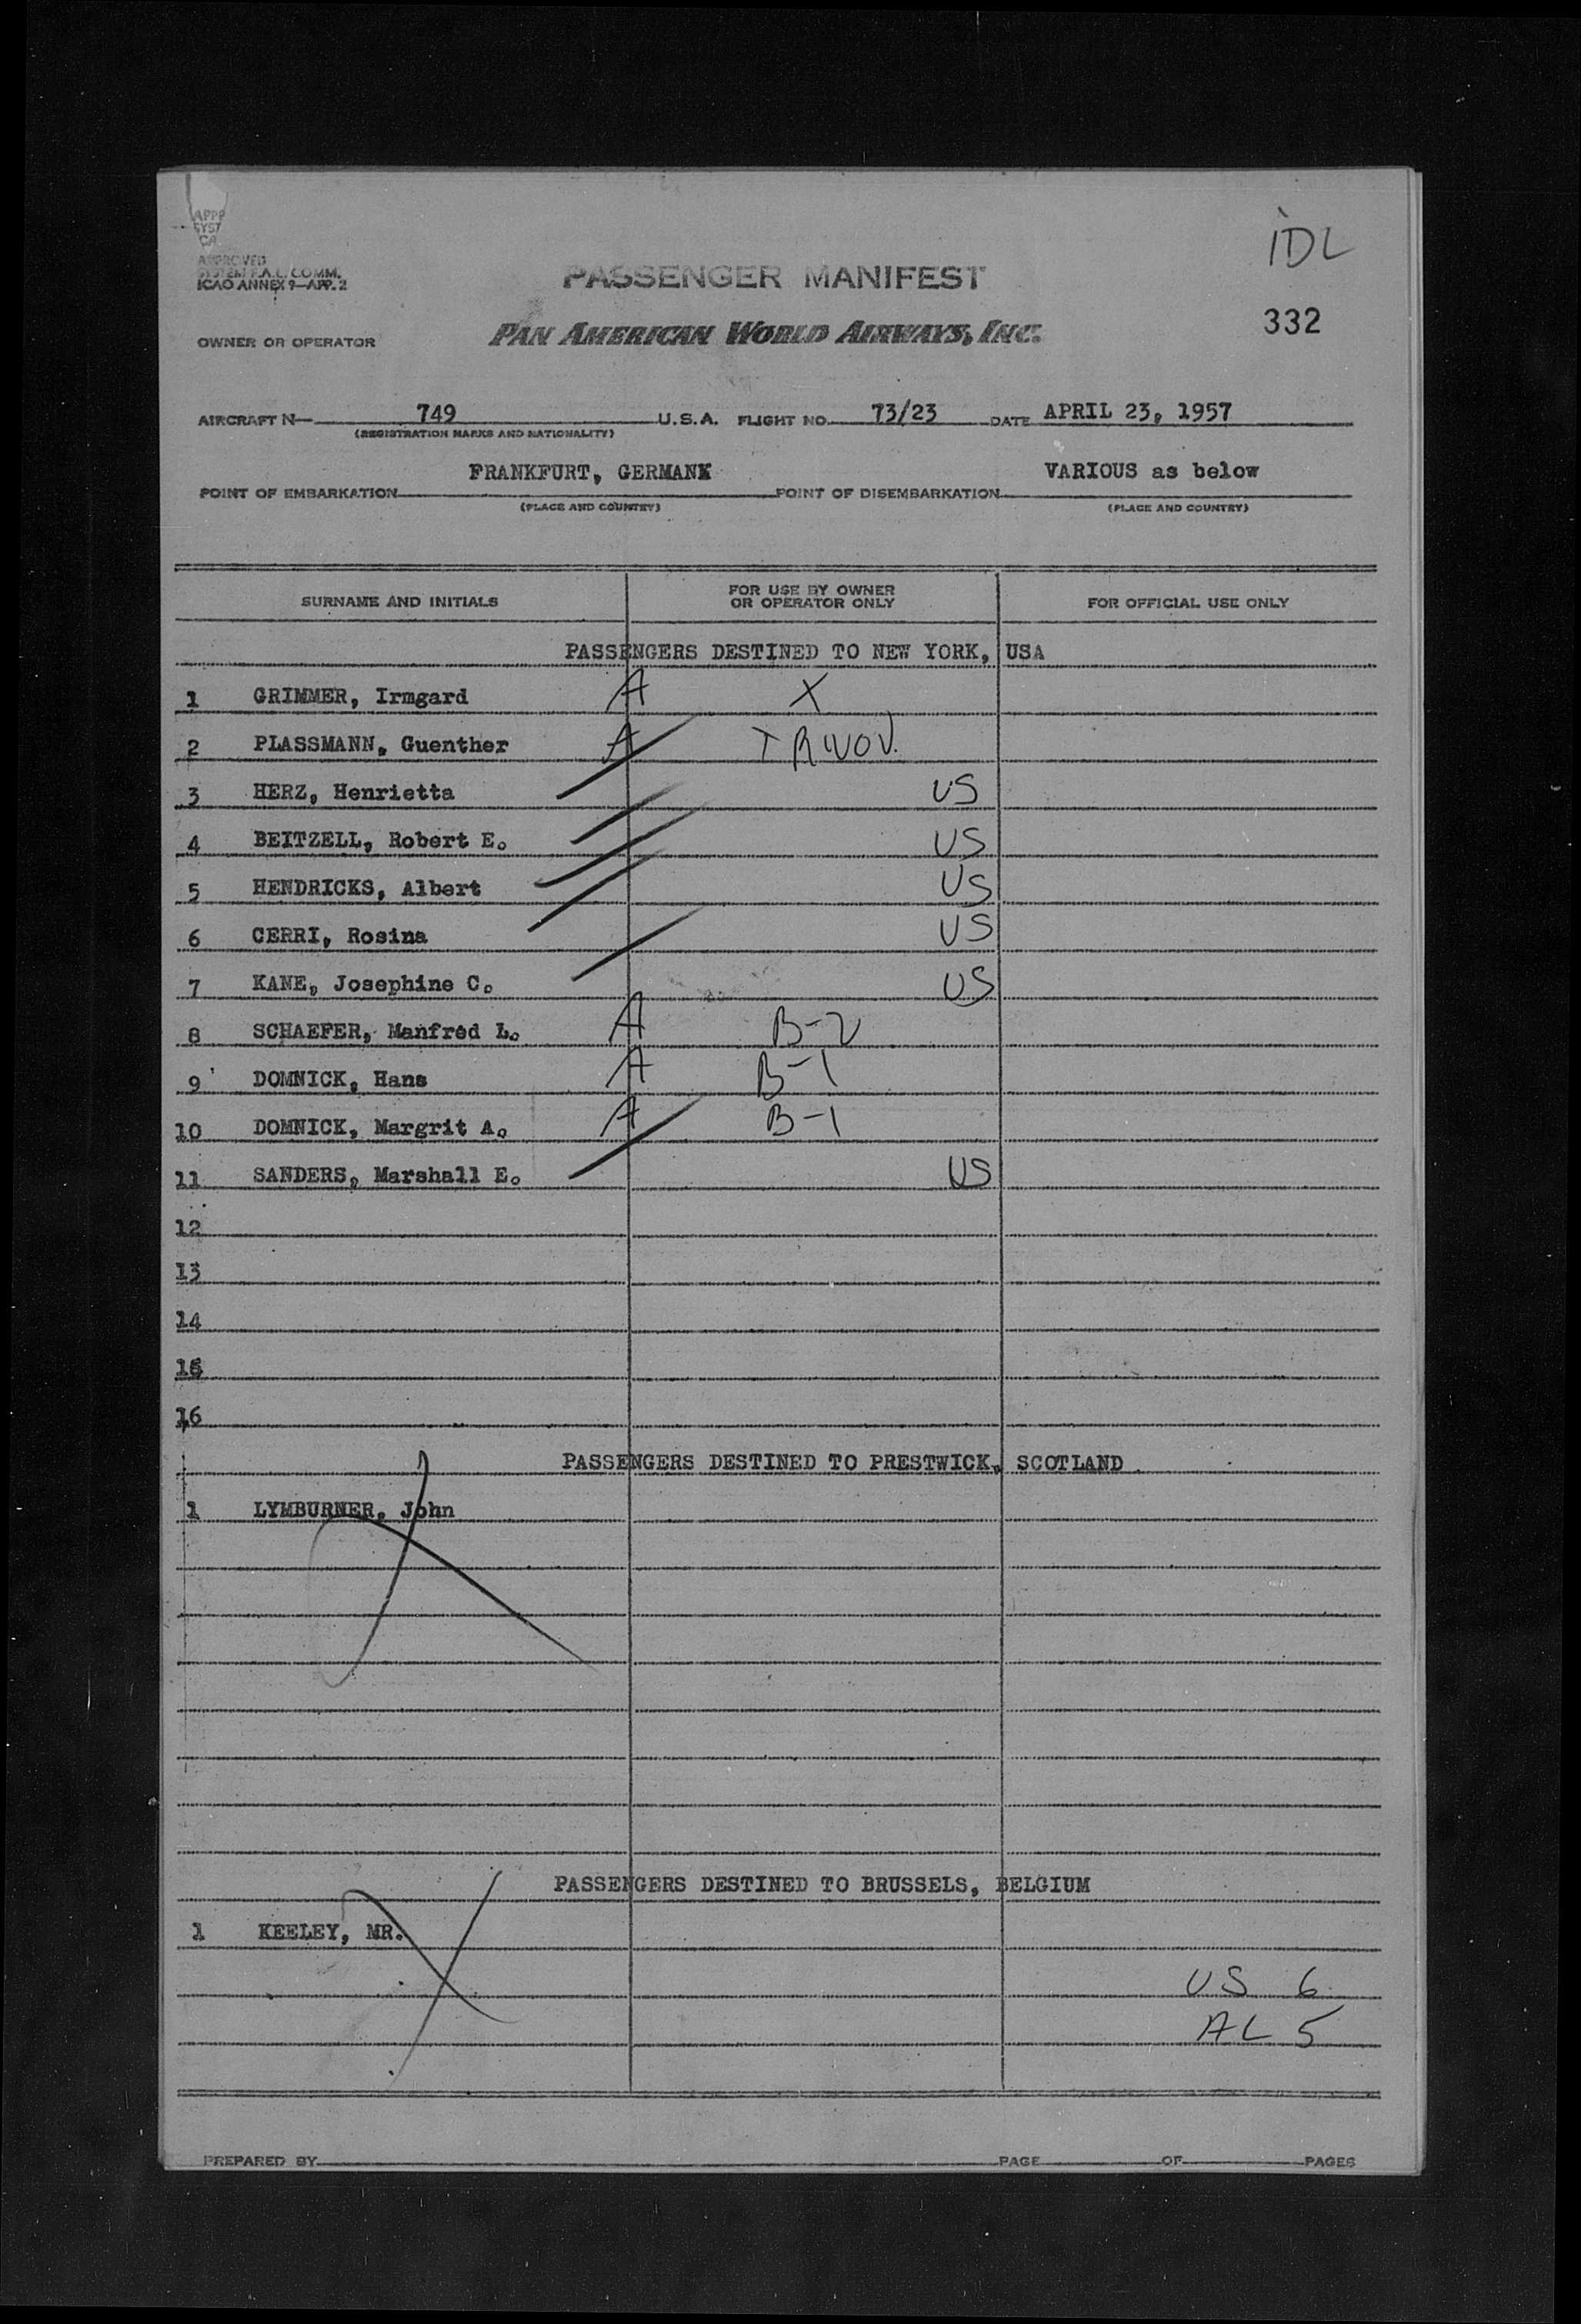 APPR
SYST
CA
APPROVED
SYSTEM F.A.L. COMM.
ICAO ANNEX 9—APP. 2
IDL
PASSENGER MANIFEST
332
OWNER OR OPERATOR PAN AMERICAN WORLD AIRWAYS, INC.
AIRCRAFT N— 749 U.S.A. FLIGHT NO. 73/23 DATE APRIL 23, 1957
(REGISTRATION MARKS AND NATIONALITY)
FRANKFURT, GERMANY VARIOUS as below
POINT OF EMBARKATION POINT OF DISEMBARKATION
(PLACE AND COUNTRY) (PLACE AND COUNTRY)
SURNAME AND INITIALS FOR USE BY OWNER OR OPERATOR ONLY FOR OFFICIAL USE ONLY
PASSENGERS DESTINED TO NEW YORK, USA
1 GRIMMER, Irmgard A X
2 PLASSMANN, Guenther A
3 HERZ, Henrietta US
4 BEITZELL, Robert E. US
5 HENDRICKS, Albert US
6 CERRI, Rosina US
7 KANE, Josephine C. US
8 SCHAEFER, Manfred L. A B-2
9 DOMNICK, Hans A B-1
10 DOMNICK, Margrit A. A B-1
11 SANDERS, Marshall E. US
12
13
14
15
16
PASSENGERS DESTINED TO PRESTWICK, SCOTLAND
1 LYMBURNER, John
PASSENGERS DESTINED TO BRUSSELS, BELGIUM
1 KEELEY, MR.
US 6
AL 5
PREPARED BY PAGE OF PAGES